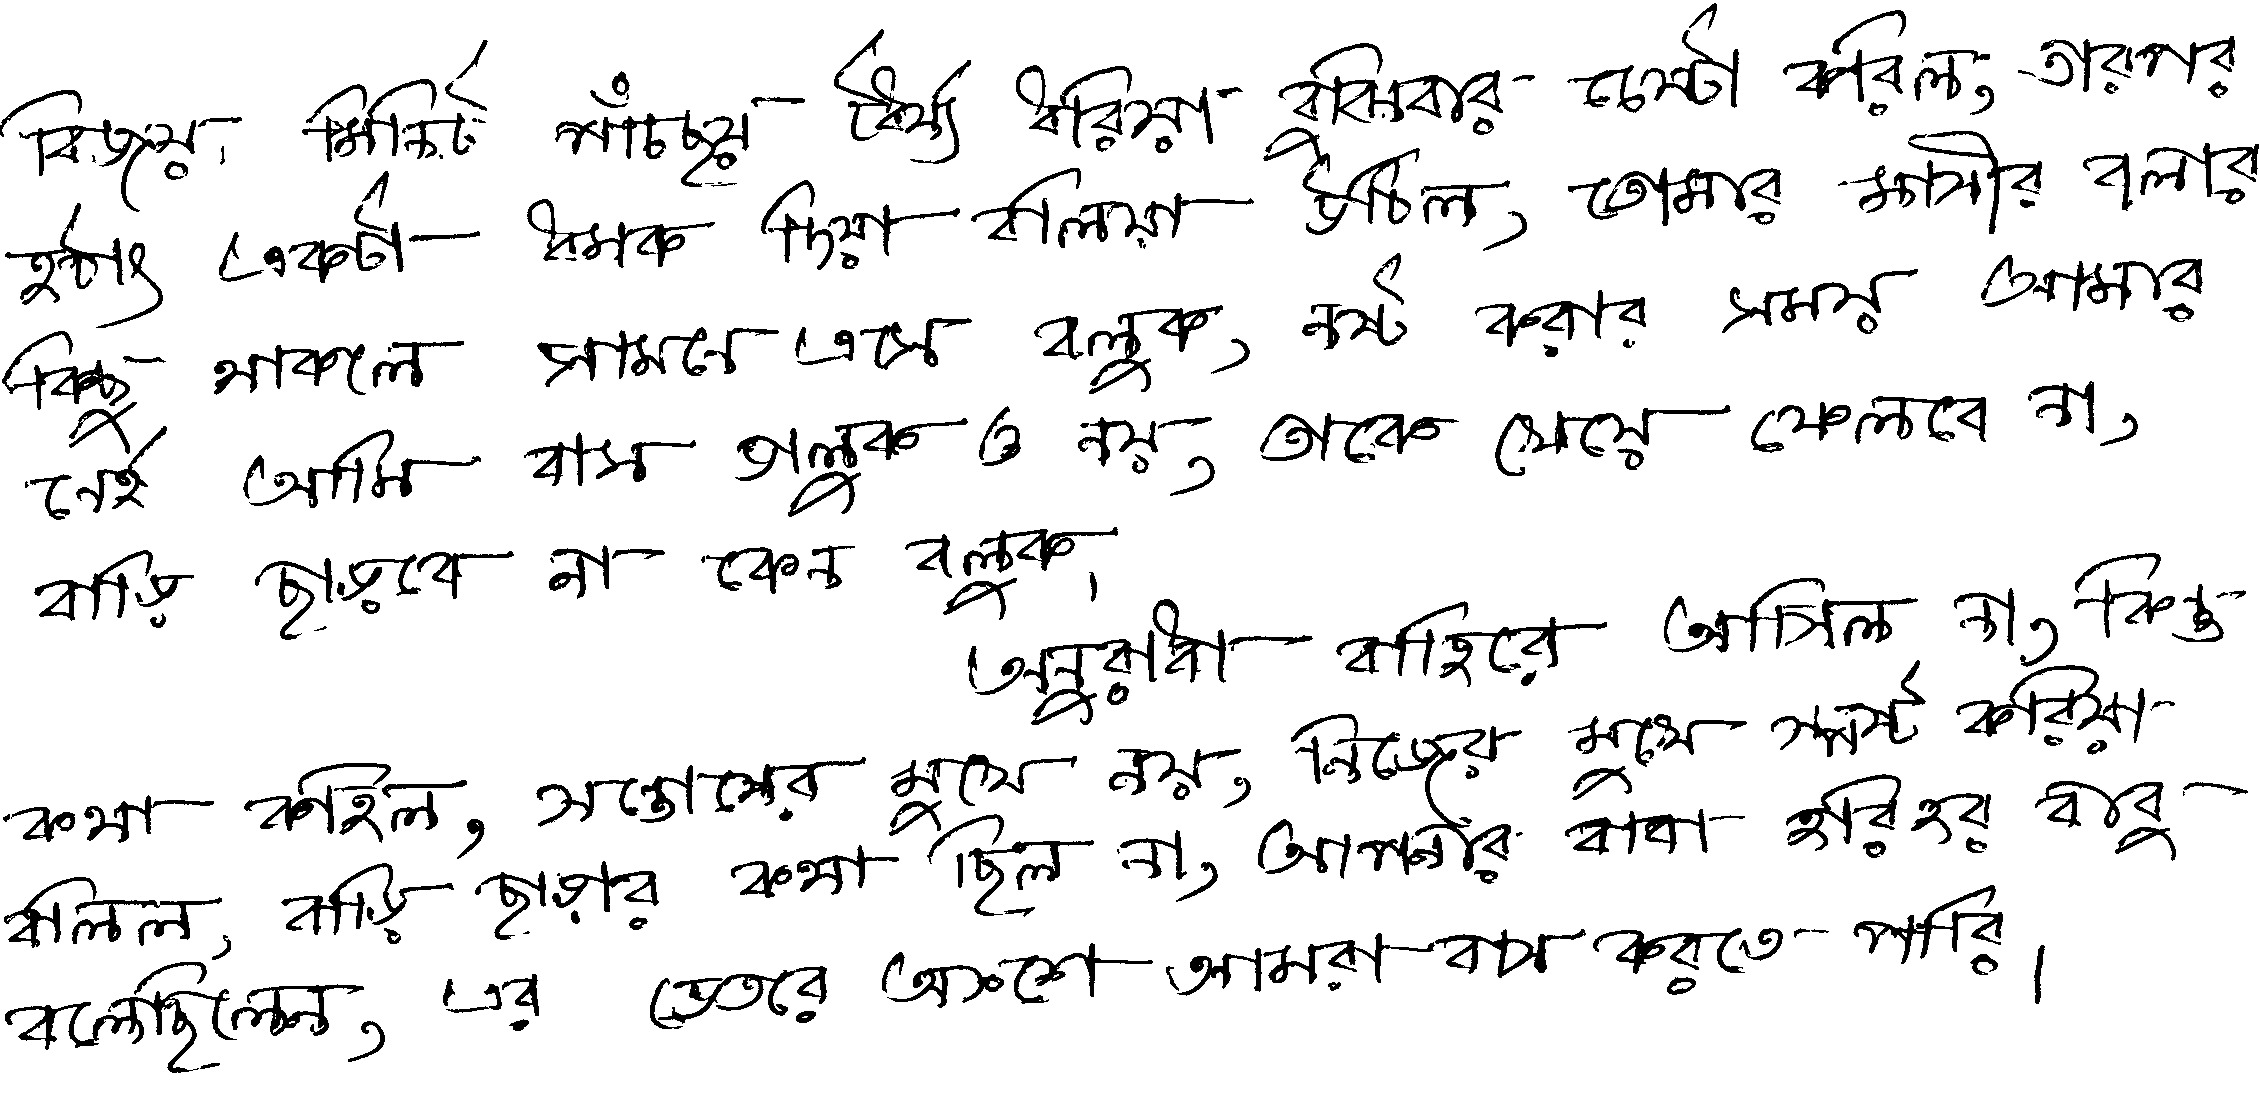 বিজয় মিনিট পাঁচছয় ধৈর্য্য ধরিয়া বুঝিবার চেষ্টা করিল, তারপর
হঠাৎ একটা ধমক দিয়া বলিয়া উঠিল, তোমার মাসীর বলার
কিছু থাকলে সামনে এসে বলুক, নষ্ট করার সময় আমার
নেই আমি বাঘ ভালুক ও নয়, তাকে খেয়ে ফেলবে না,
বাড়ি ছাড়বে না কেন বলুক।
অনুরাধা বাহিরে আসিল না, কিন্তু
কথা কহিল, সন্তোষের মুখে নয়, নিজের মুখে স্পষ্ট করিয়া
বলিল, বাড়ি ছাড়ার কথা ছিল না, আপনার বাবা হরিহর বাবু
বলেছিলেন, এর ভেতরে অংশে আমরা বাস করতে পারি।